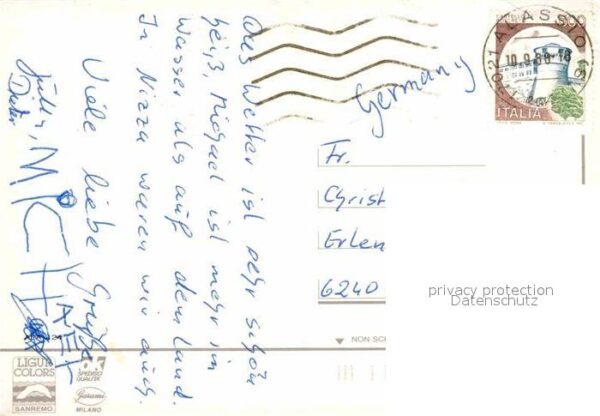 das Wetter ist sehr schön
heiß, Michael ist mehr im
Wasser als auf dem Land.
In Nizza waren wir auch.
Viele liebe Grüße
Dieter
MICHAEL
Germany
Fr.
Christ
Erlen
6240
privacy protection
Datenschutz
ALASSIO
10.9.86-18
500
ITALIA
NON SC
LIGUR
COLORS
SANREMO
SPEDISCI
QUALITA'
Garami
MILANO